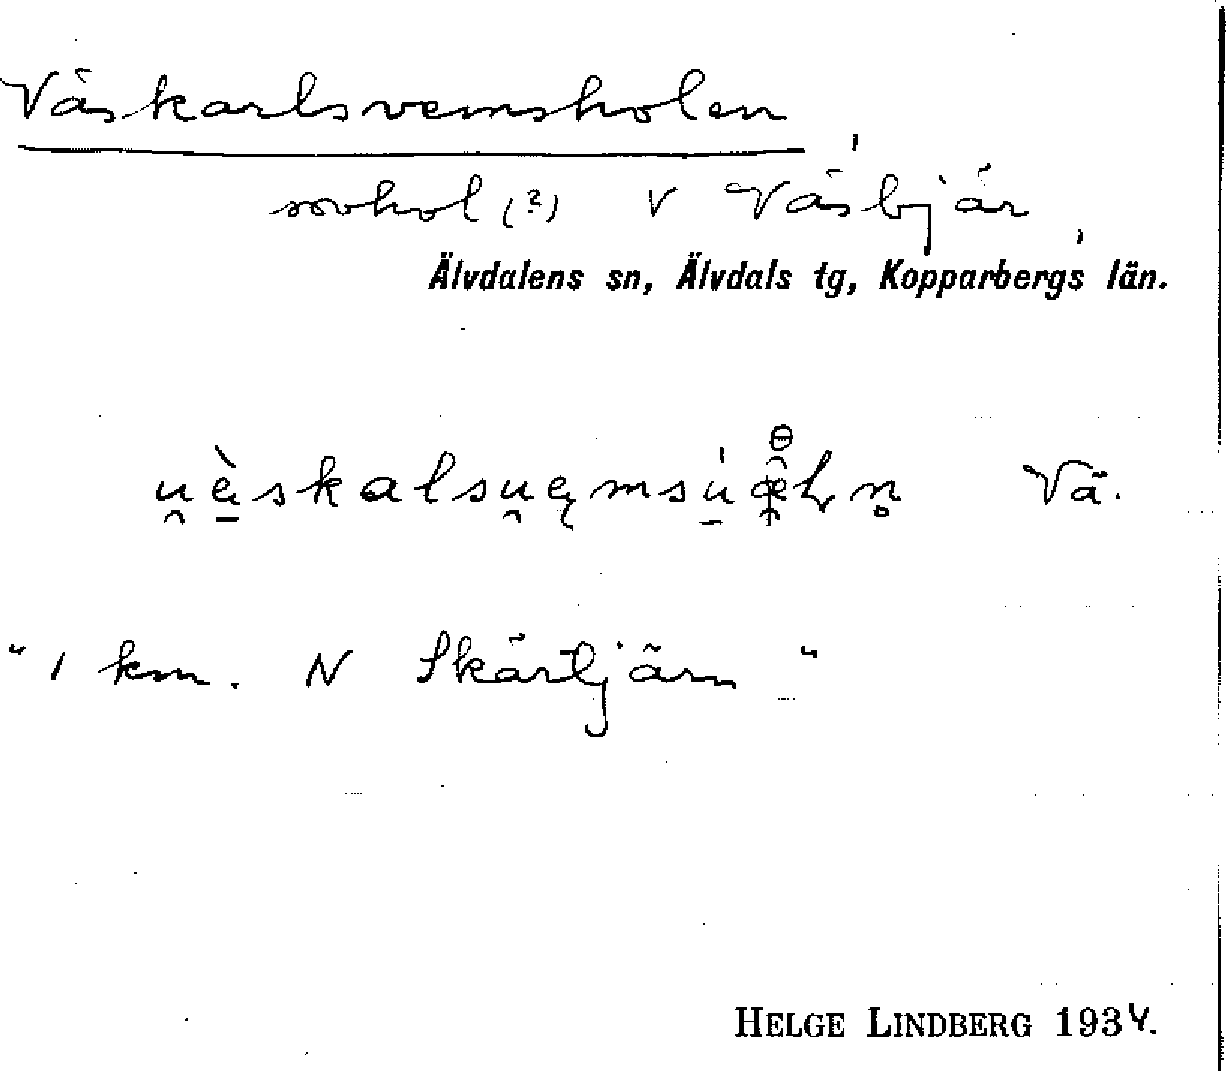 Väskarlsvemsholen
sovhol (?) V Väsbjär,
Älvdalens sn, Älvdals tg, Kopparbergs län.
Vä.
"1 km. N Skärtjärn"
HELGE LINDBERG 1934.